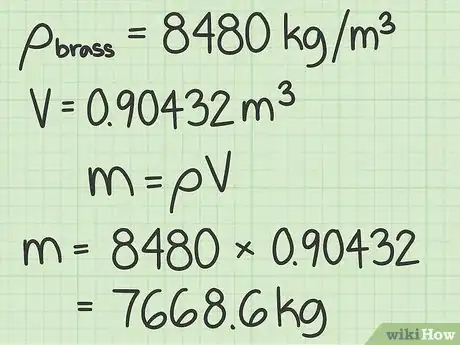 ρbrass = 8480 kg/m³
V = 0.90432 m³
m = ρV
m = 8480 × 0.90432
= 7668.6 kg
wikiHow